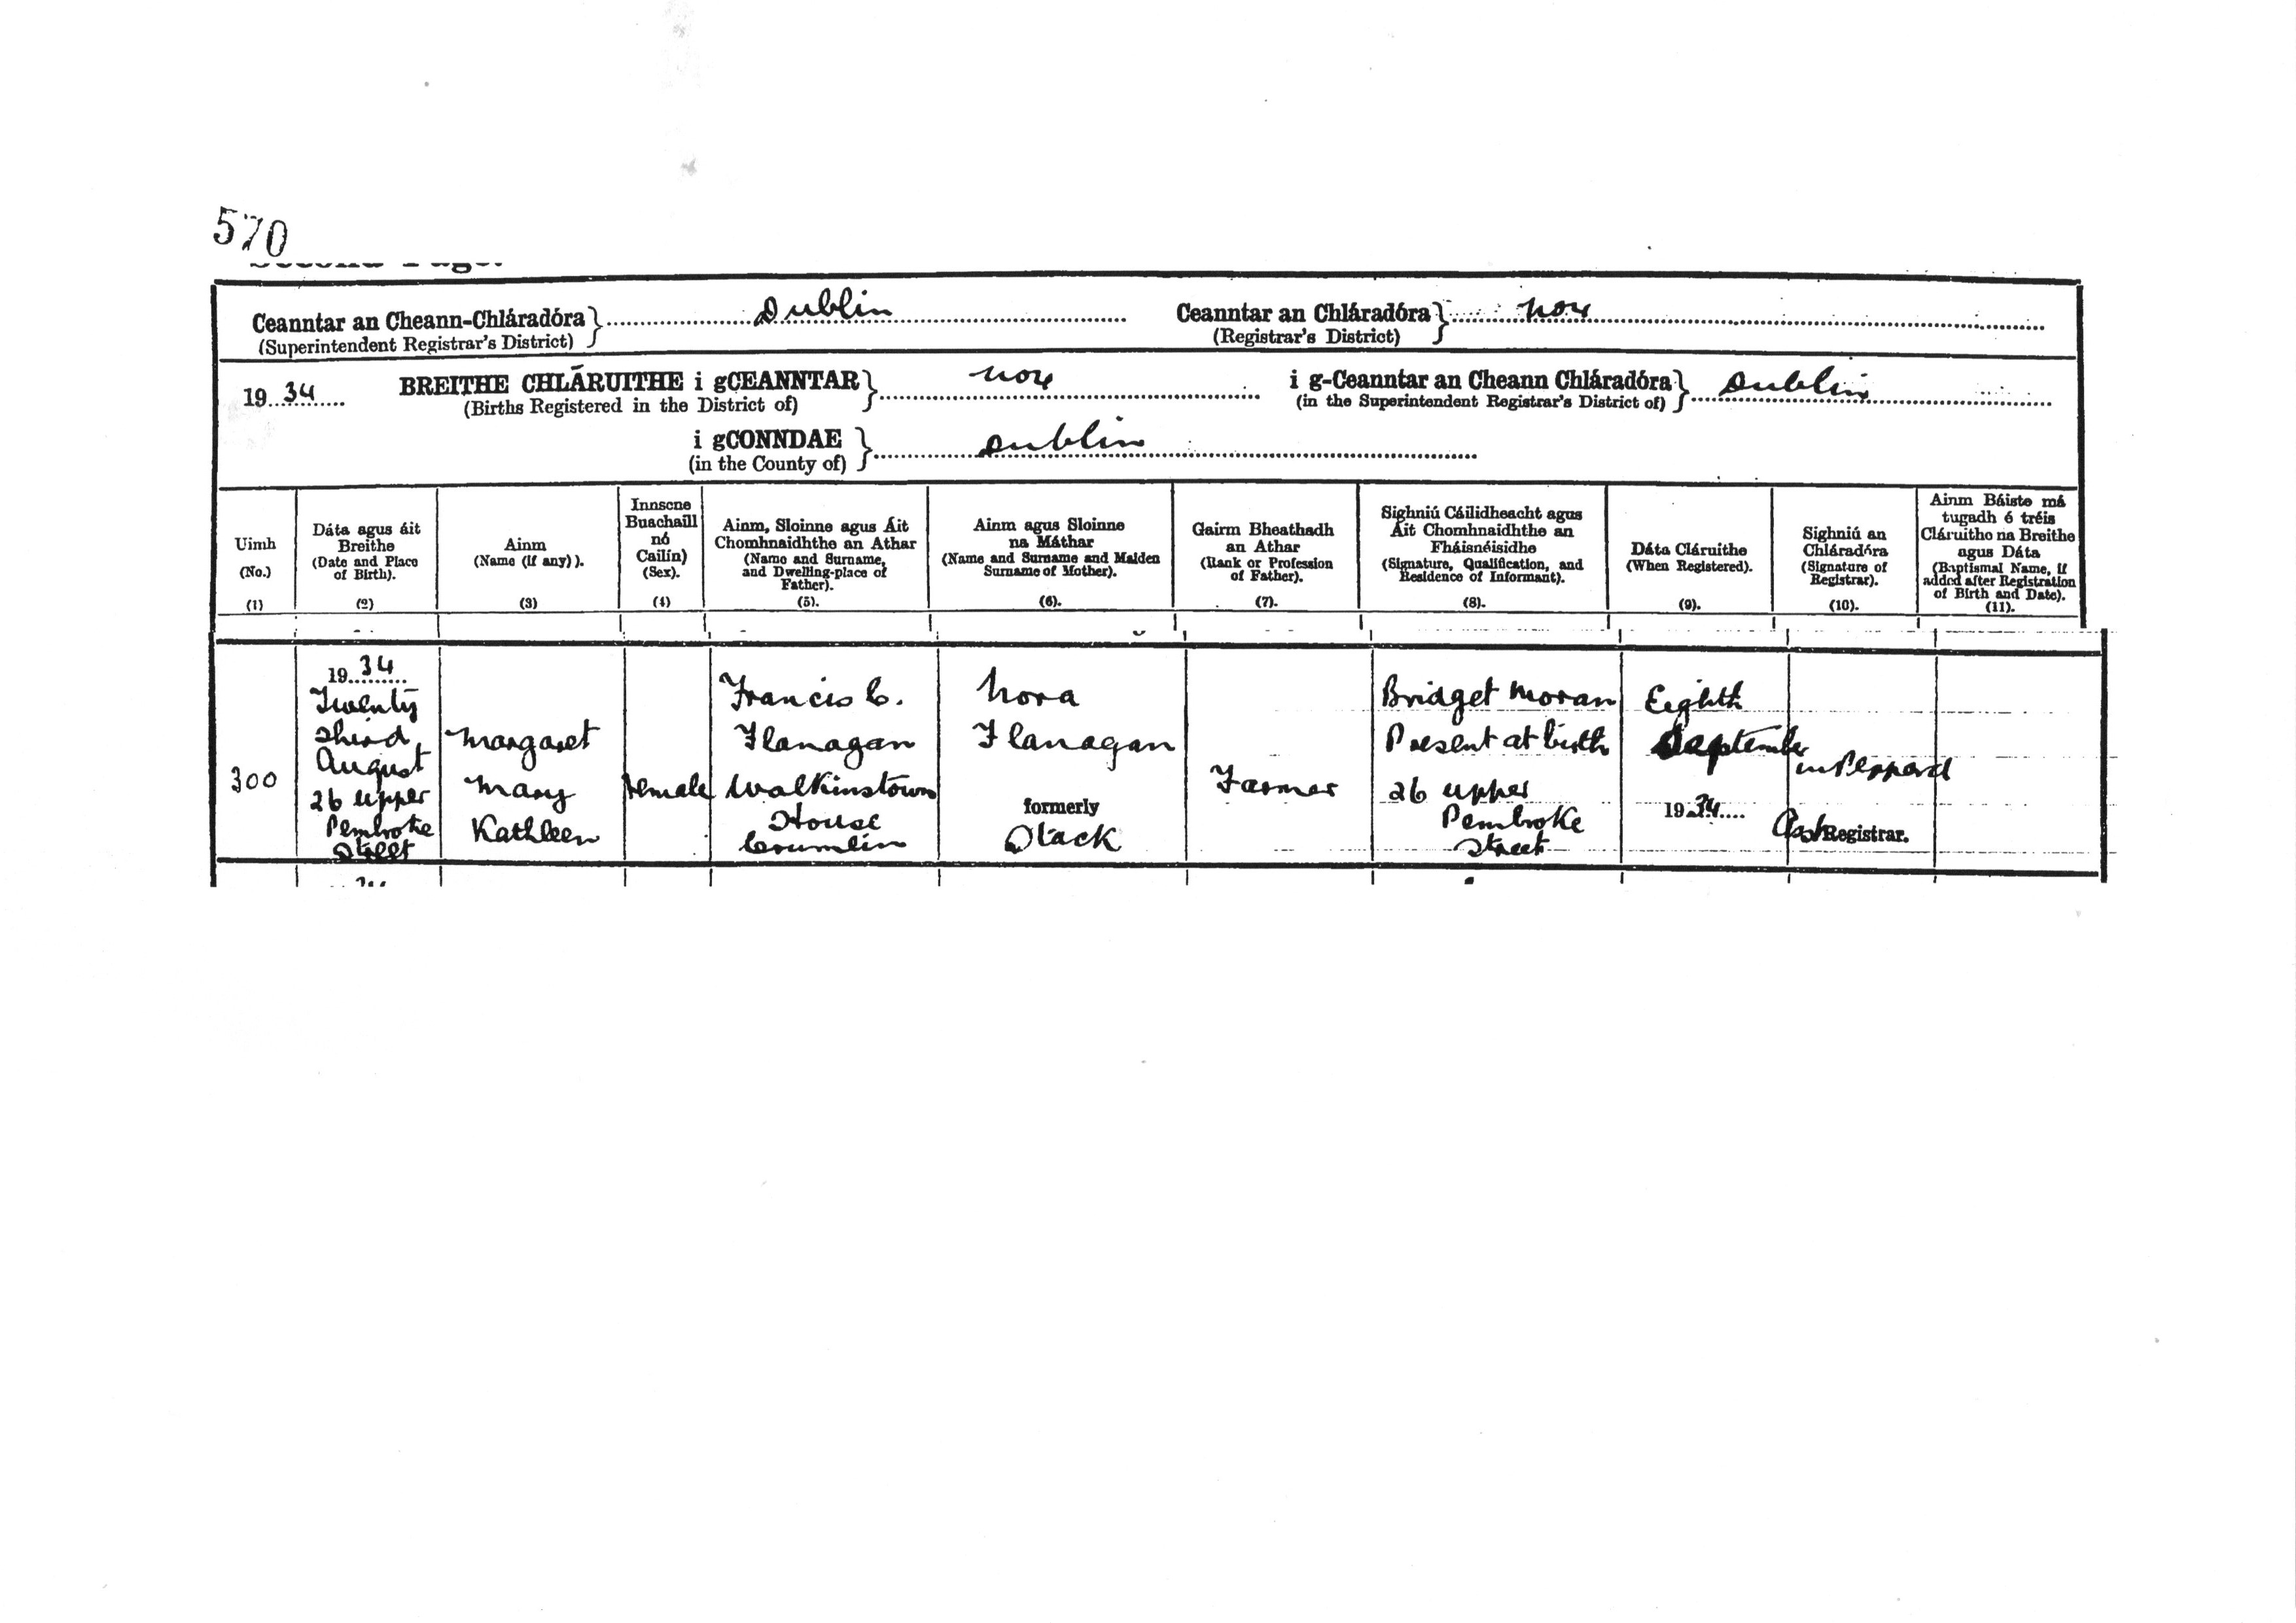 570
Ceanntar an Cheann-Chláradóra} Dublin Ceanntar an Chláradóra}
(Superintendent Registrar's District) (Registrar's District)
19 34 BREITHE CHLÁRUITHE i gCEANNTAR} i g-Ceanntar an Cheann Chláradóra} Dublin
(Births Registered in the District of) (in the Superintendent Registrar's District of)
i gCONNDAE} Dublin
(in the County of)
Uimh
(No.)
(1)
Dáta agus áit
Breithe
(Date and Place
of Birth).
(2)
Ainm
(Name (if any)).
(3)
Innscne
Buachaill
nó
Cailín)
(Sex).
(4)
Ainm, Sloinne agus Áit
Chomhnaidhthe an Athar
(Name and Surname,
and Dwelling-place of
Father).
(5).
Ainm agus Sloinne
na Máthar
(Name and Surname and Maiden
Surname of Mother).
(6).
Gairm Bheathadh
an Athar
(Rank or Profession
of Father).
(7).
Sighniú Cáilidheacht agus
Áit Chomhnaidhthe an
Fháisnéisidhe
(Signature, Qualification, and
Residence of Informant).
(8).
Dáta Cláruithe
(When Registered).
(9).
Sighniú an
Chláradóra
(Signature of
Registrar).
(10).
Ainm Báiste má
tugadh é tréis
Cláruithe na Breithe
agus Dáta
(Baptismal Name, if
added after Registration
of Birth and Date).
(11).
300
19 34
Twenty
third
August
26 upper
Pembroke
Street
Margaret
Mary
Kathleen
Female
Francis C.
Flanagan
Walkinstown
House
Crumlin
Nora
Flanagan
formerly
Slack
Farmer
Bridget Moran
Present at birth
26 upper
Pembroke
Street
Eighth
September
19 34
M Peppard
Asst Registrar.